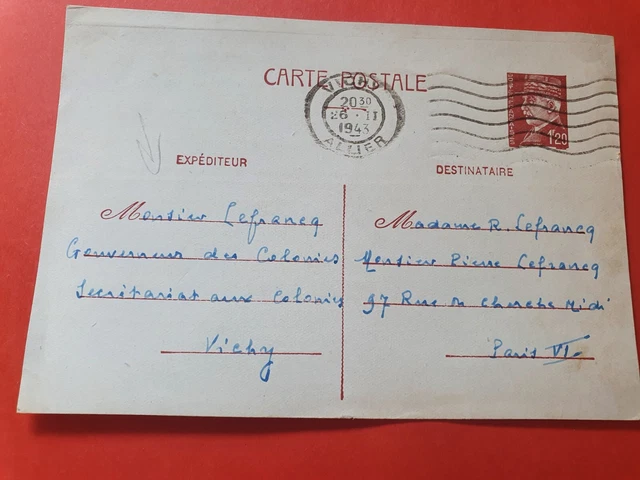 CARTE POSTALE
VICHY
20 30
26 · II
1943
ALLIER
1F20
EXPÉDITEUR
DESTINATAIRE
Monsieur Lefrancq
Gouverneur des Colonies
Secrétariat aux Colonies
Vichy
Madame R. Lefrancq
Monsieur Pierre Lefrancq
97 Rue du Cherche Midi
Paris VI